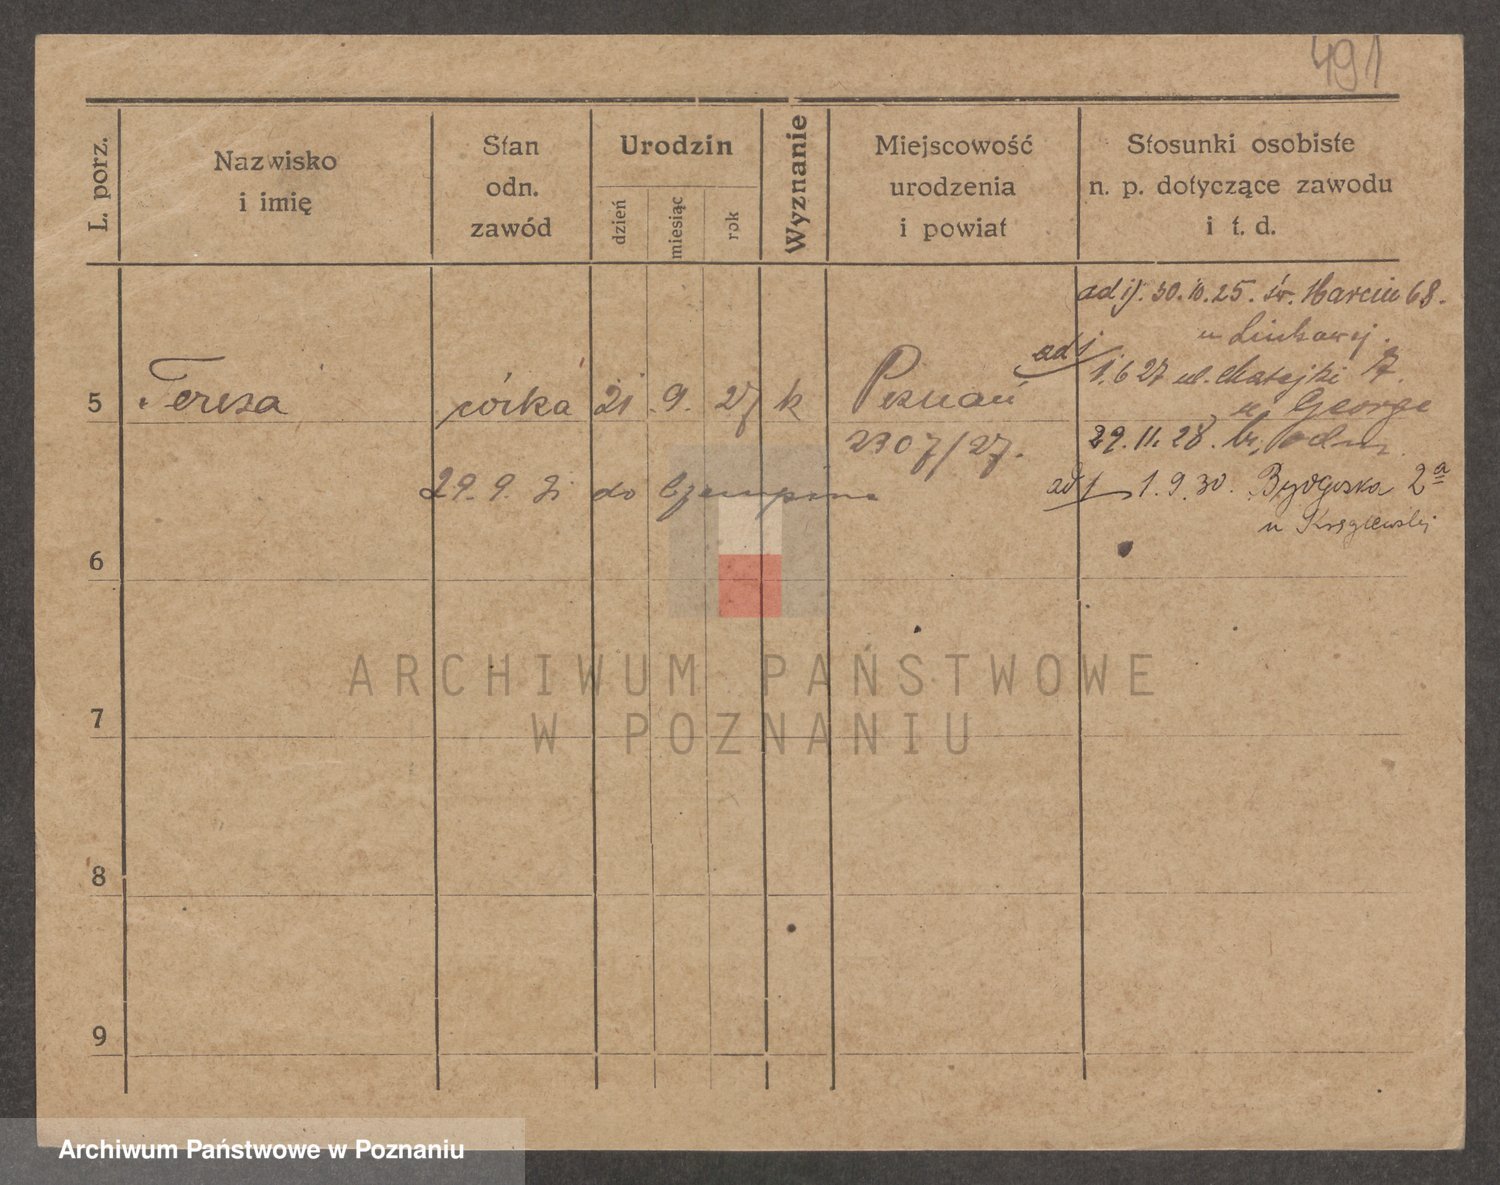 491
L. porz.
Nazwisko
i imię
Stan
odn.
zawód
Urodzin
dzień
miesiąc
rok
Wyznanie
Miejscowość
urodzenia
i powiat
Stosunki osobiste
n. p. dotyczące zawodu
i t. d.
ad 1). 30.10.25. św. Marcin 68.
u
ad 1
1.6 27 ul. Matejki
5 Teresa córka 21 9. 27 k Poznań
u George
2307/27.
29.11.28.
29. 9. 31 do Czempinia
ad 1 1.9.30. Bydgoska 2a
u
6
7
8
9
ARCHIWUM PAŃSTWOWE
W POZNANIU
Archiwum Państwowe w Poznaniu